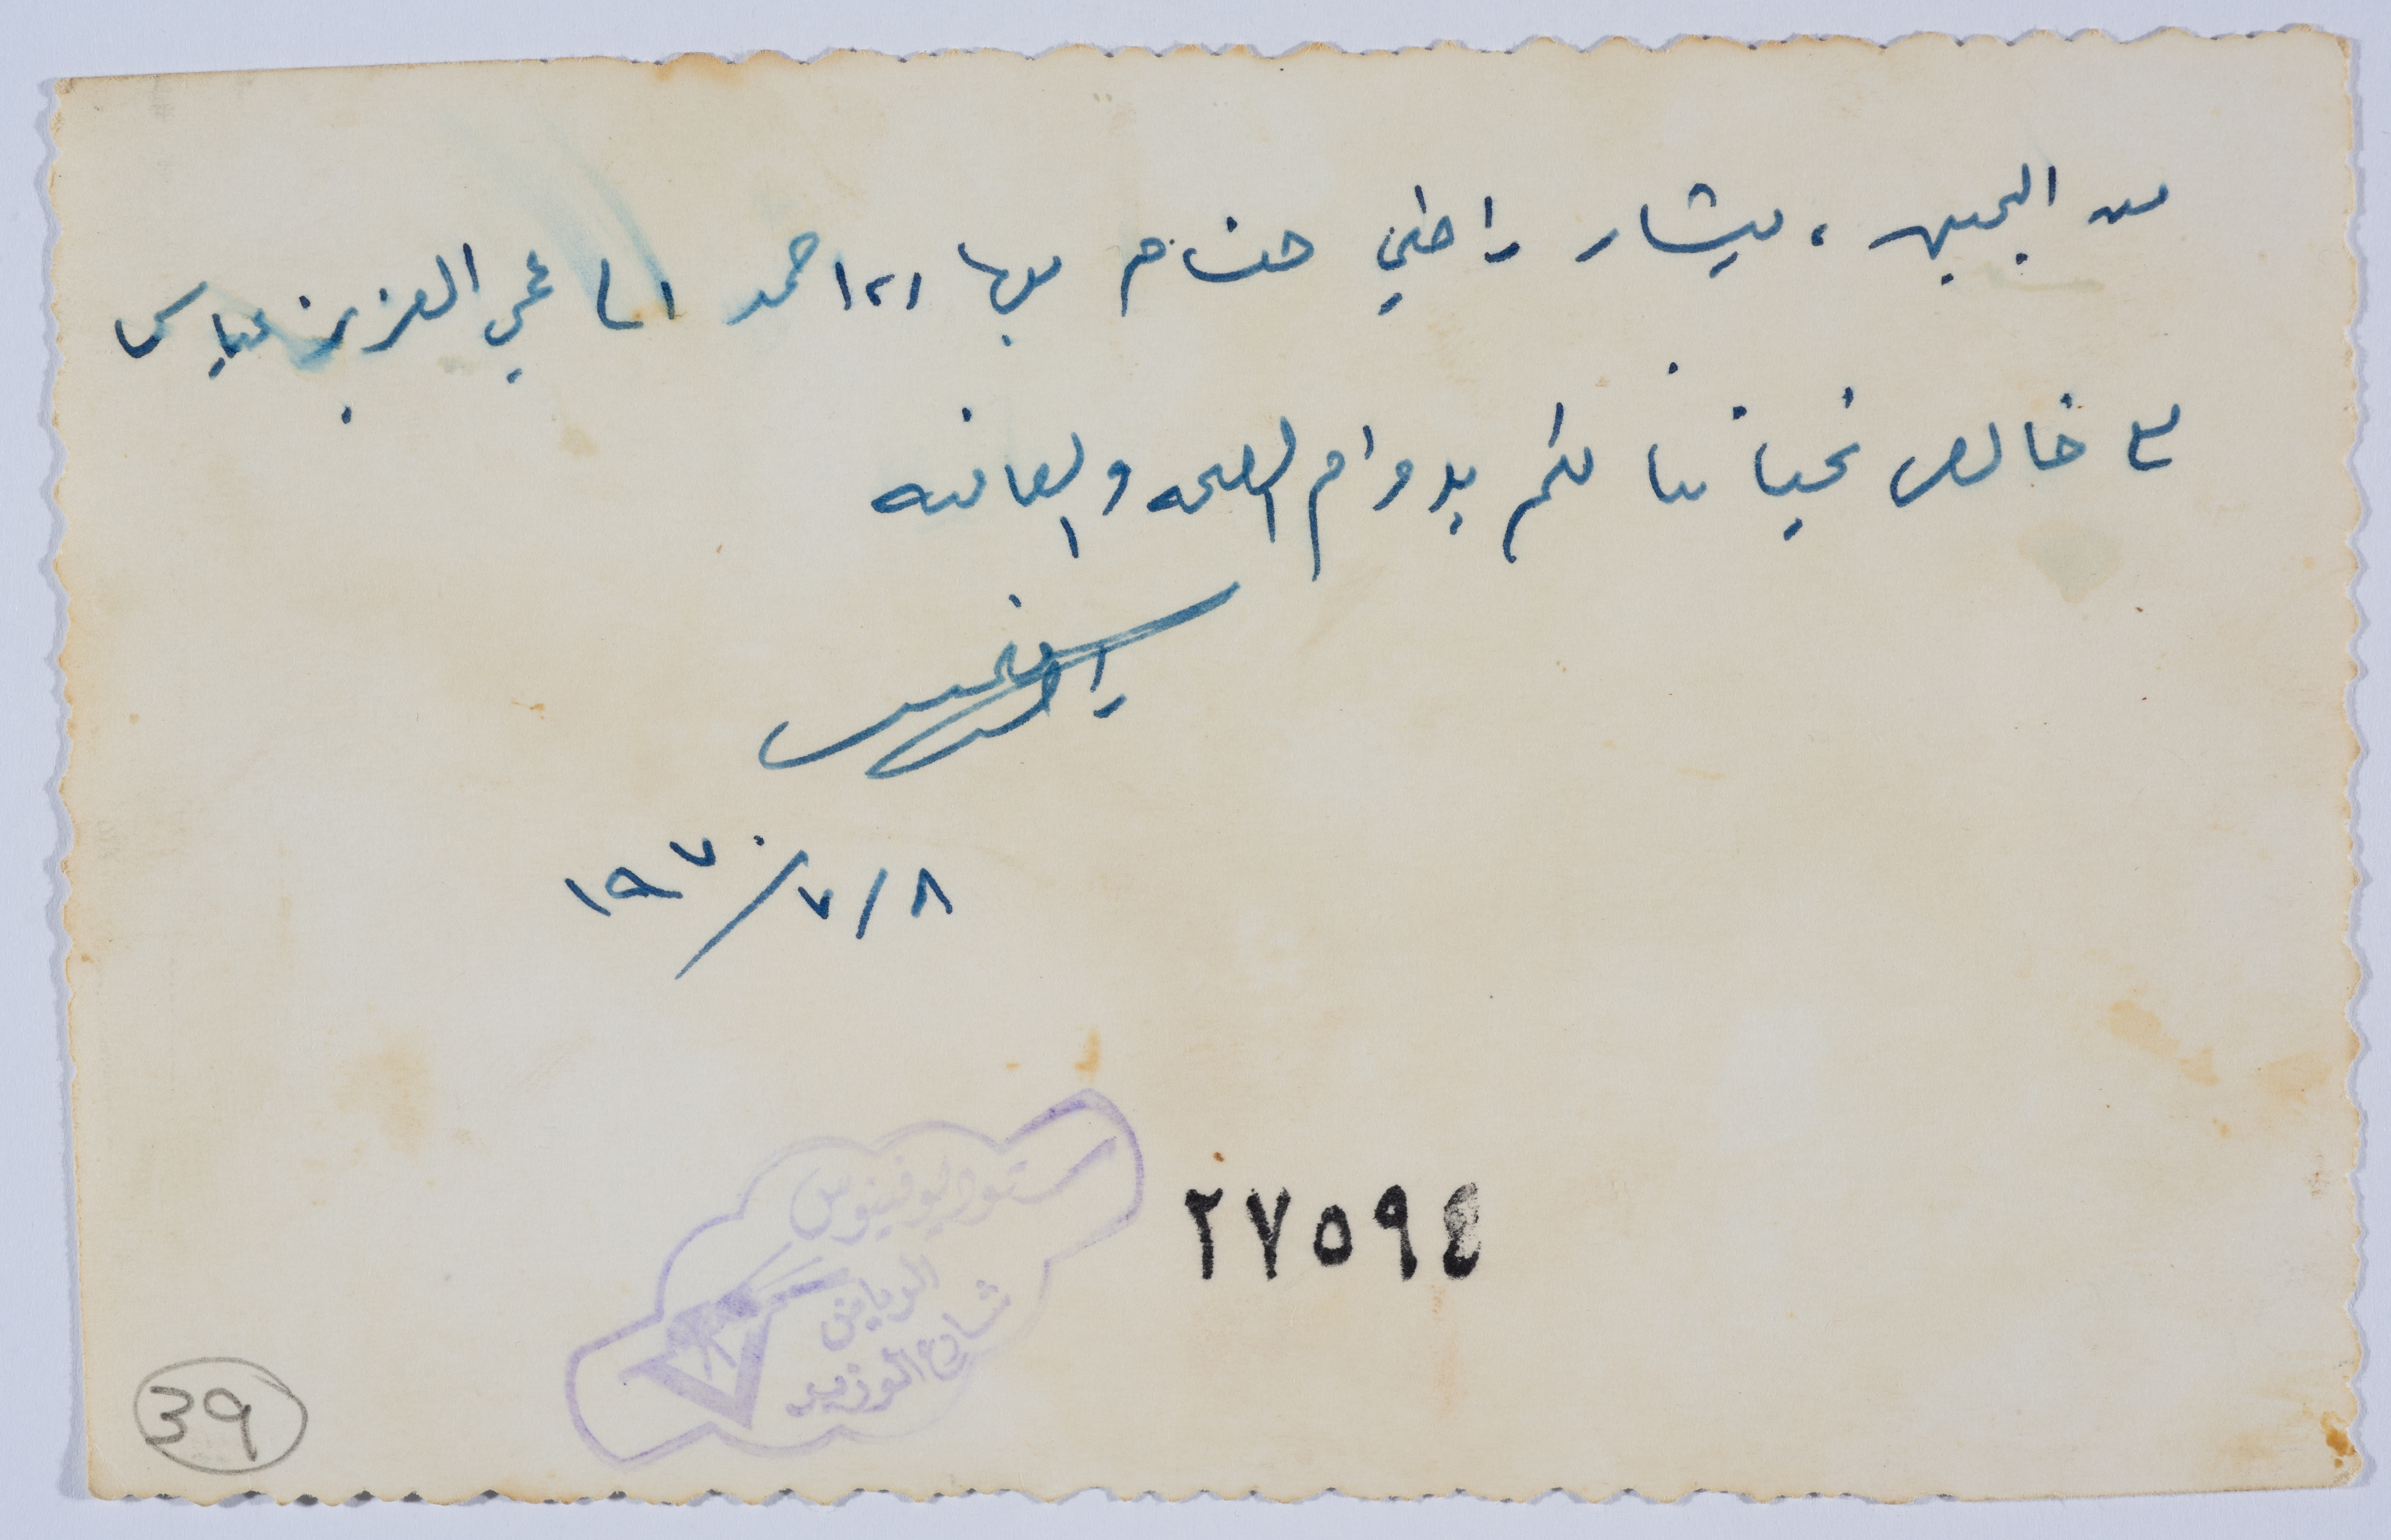 من اليمين، بشار راضي هشام بهاء احمد الى عمي العزيز عباس
مع خالص تحياتنا لكم بدوام الصحه والعافيه
راضي
١٩٧٠/٧/٨
ستوديو فينوس
الرياض
شارع الوزير
٢٧٥٩٤
39